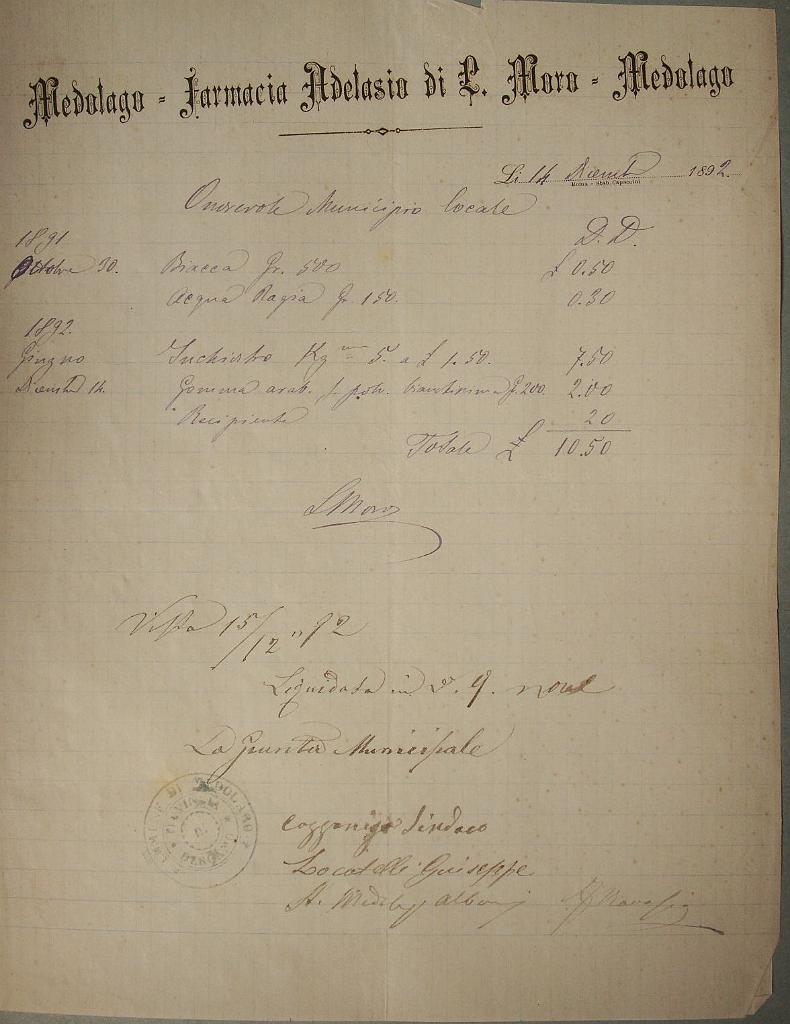 Medolago - Farmacia Adelasio di L. Moro - Medolago
Li 14 Dicemb 1892.
Roma - Stab. Capaccini
Onorevole Municipio locale
D. D.
1891
Ottobre 30. Biacca Gr. 500 £ 0.50
Acqua Ragia Gr. 150. 0.30
1892.
Giugno Inchiostro Kg 5. a £ 1.50. 7.50
Dicemb 14. Gomma arab. polv. Gr. 200 2.00
Recipiente 20
Totale £ 10.50
LMoro
Vista 15/12 "92
Liquidata in 9. nove
La Giunta Municipale
COMUNE DI MEDOLAGO
Sindaco
Locatelli Giuseppe
A. Medolago Albani